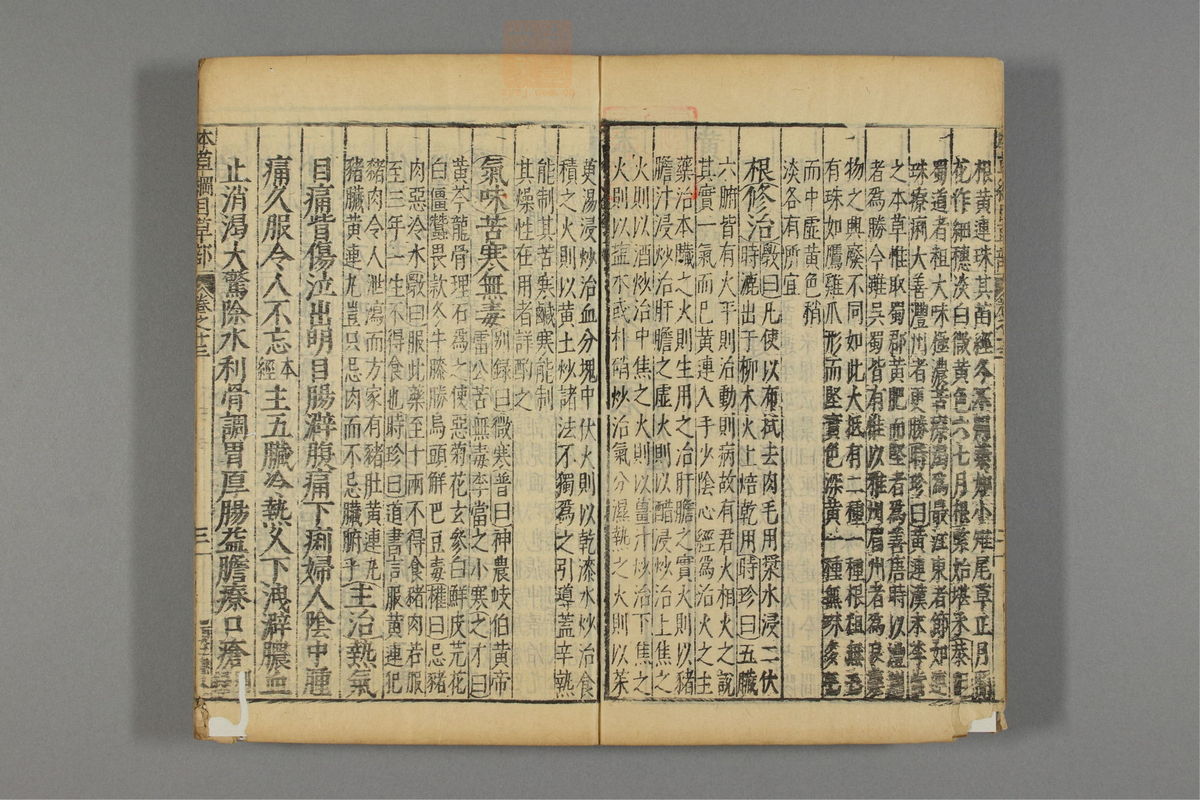 根黄連珠其苗經冬不凋葉如小雉尾草正月開
花作細穗淡白微黄色六七月根緊始堪采葉目
蜀道者粗大味極濃苦療渴為最江東者節如連
珠療痢大善澧州者更勝時珍曰黄連漢末李當
之本草惟取蜀郡黄肥而堅者為善唐時以澧州
者為勝今雖吳蜀皆有惟以雅州眉州者為良藥
物之興廢不同如此大抵有二種一種根粗無毛
有珠如鷹雞爪形而堅實色深黄一種無珠多毛
而中虛黄色稍
淡各有所宜
根修治斆曰凡使以布拭去肉毛用漿水浸二伏
時漉出于柳木火上焙乾用時珍曰五臟
六腑皆有火平則治動則病故有君火相火之說
其實一氣而已黄連入手少陰心經為治火之主
藥治本臟之火則生用之治肝膽之實火則以豬
膽汁浸炒治肝膽之虛火則以醋浸炒治上焦之
火則以酒炒治中焦之火則以薑汁炒治下焦之
火則以鹽水或朴硝炒治氣分濕熱之火則以茱
萸湯浸炒治血分塊中伏火則以乾漆水炒治食
積之火則以黄土炒諸法不獨為之引導蓋辛熱
能制其苦寒鹹寒能制
其燥性在用者詳酌之
氣味苦寒無毒别録曰微寒普曰神農岐伯黄帝
雷公苦無毒李當之小寒之才曰
黄芩龍骨理石為之使惡菊花玄參白鮮皮芫花
白僵蠶畏款冬牛膝勝烏頭解巴豆毒權曰忌豬
肉惡冷水斆曰服此藥至十兩不得食豬肉若服
至三年一生不得食也時珍曰道書言服黄連犯
豬肉令人泄瀉而方家有豬肚黄連丸
豬臟黄連丸豈只忌肉而不忌臟腑乎主治熱氣
目痛眥傷泣出明目腸澼腹痛下痢婦人陰中腫
痛久服令人不忘本經主五臟冷熱久下洩澼膿血
止消渴大驚除水利骨調胃厚腸益膽療口瘡
本草綱目草部 卷之十三 三